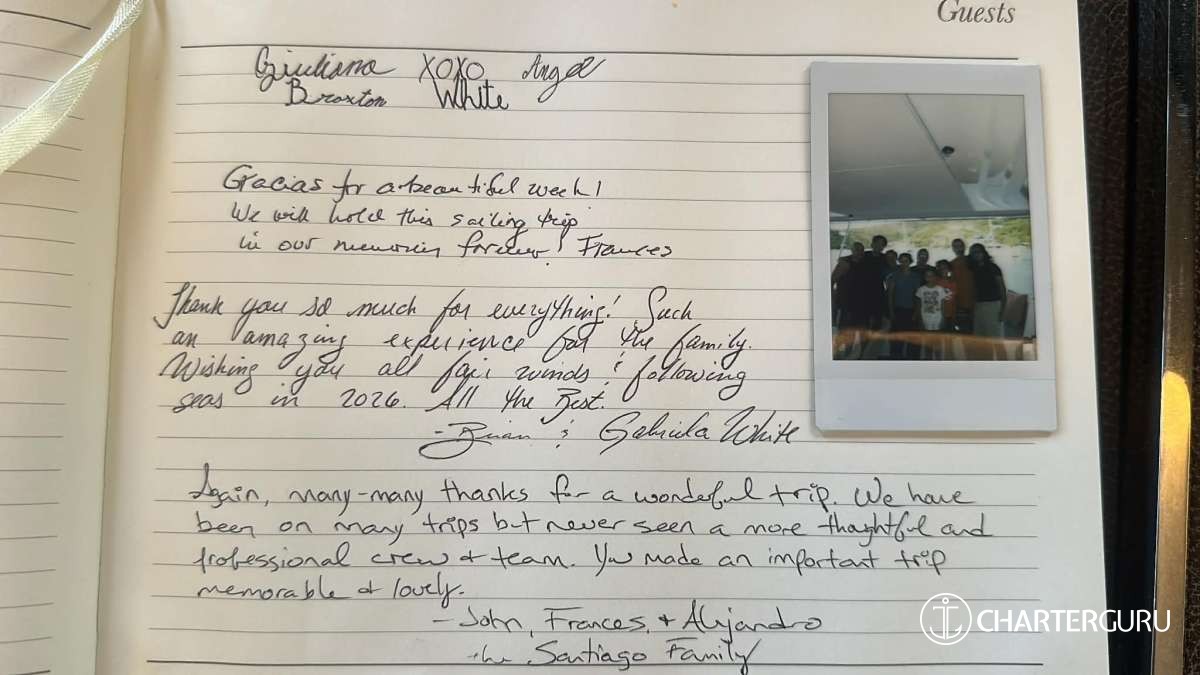 Guests
Giuliana XOXO Angel
Braxton White
Gracias for a beautiful week!
We will hold this sailing trip
in our memories forever! Frances
Thank you so much for everything! Such
an amazing experience for the family.
Wishing you all fair winds & following
seas in 2026. All the Best.
- Brian & Gabriela White
Again, many-many thanks for a wonderful trip. We have
been on many trips but never seen a more thoughtful and
professional crew & team. You made an important trip
memorable & lovely.
- John, Frances, & Alejandro
the Santiago Family
CHARTERGURU